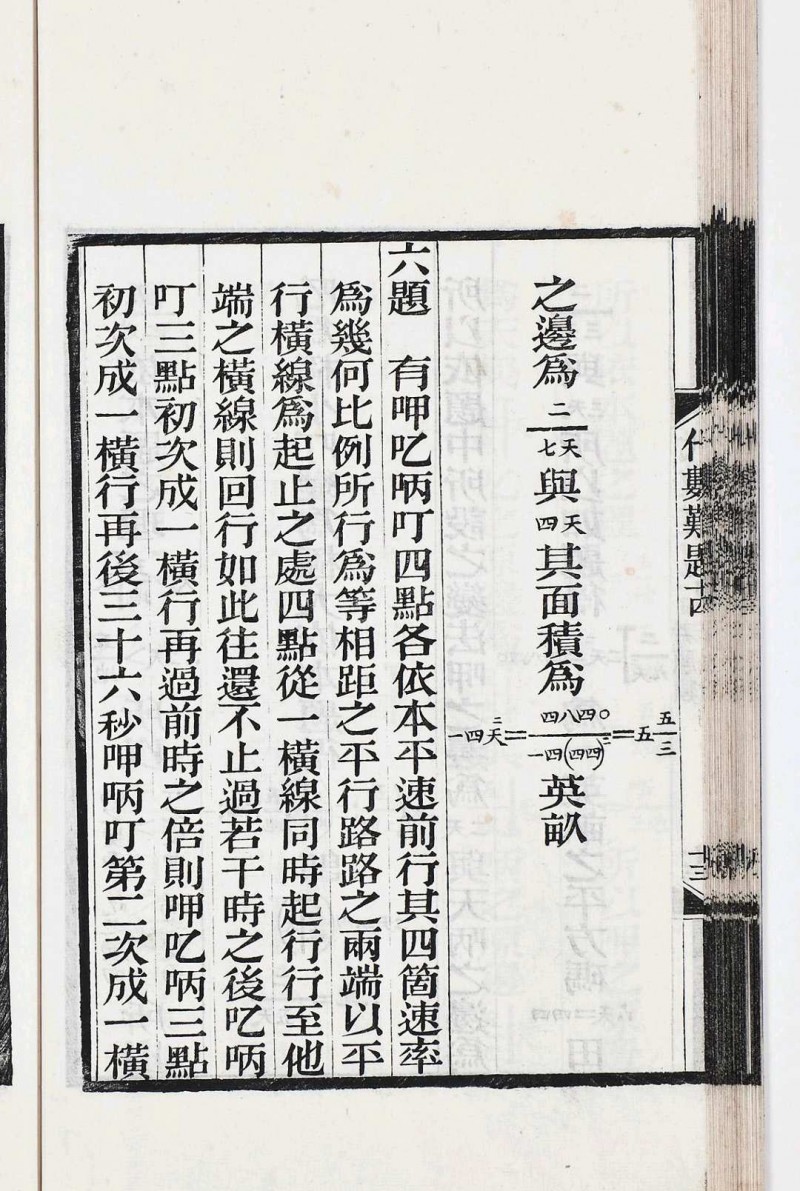 代數難題
十三
之邊爲二七天與四天其面積爲一四天二=四八四〇一四(四四)二=五五三英畝
六題　有呷吃唡叮四點各依本平速前行其四箇速率
爲幾何比例所行爲等相距之平行路路之兩端以平
行橫線爲起止之處四點從一橫線同時起行行至他
端之橫線則回行如此往還不止過若干時之後吃唡
叮三點初次成一橫行再過前時之倍則呷吃唡三點
初次成一橫行再後三十六秒呷唡叮第二次成一橫